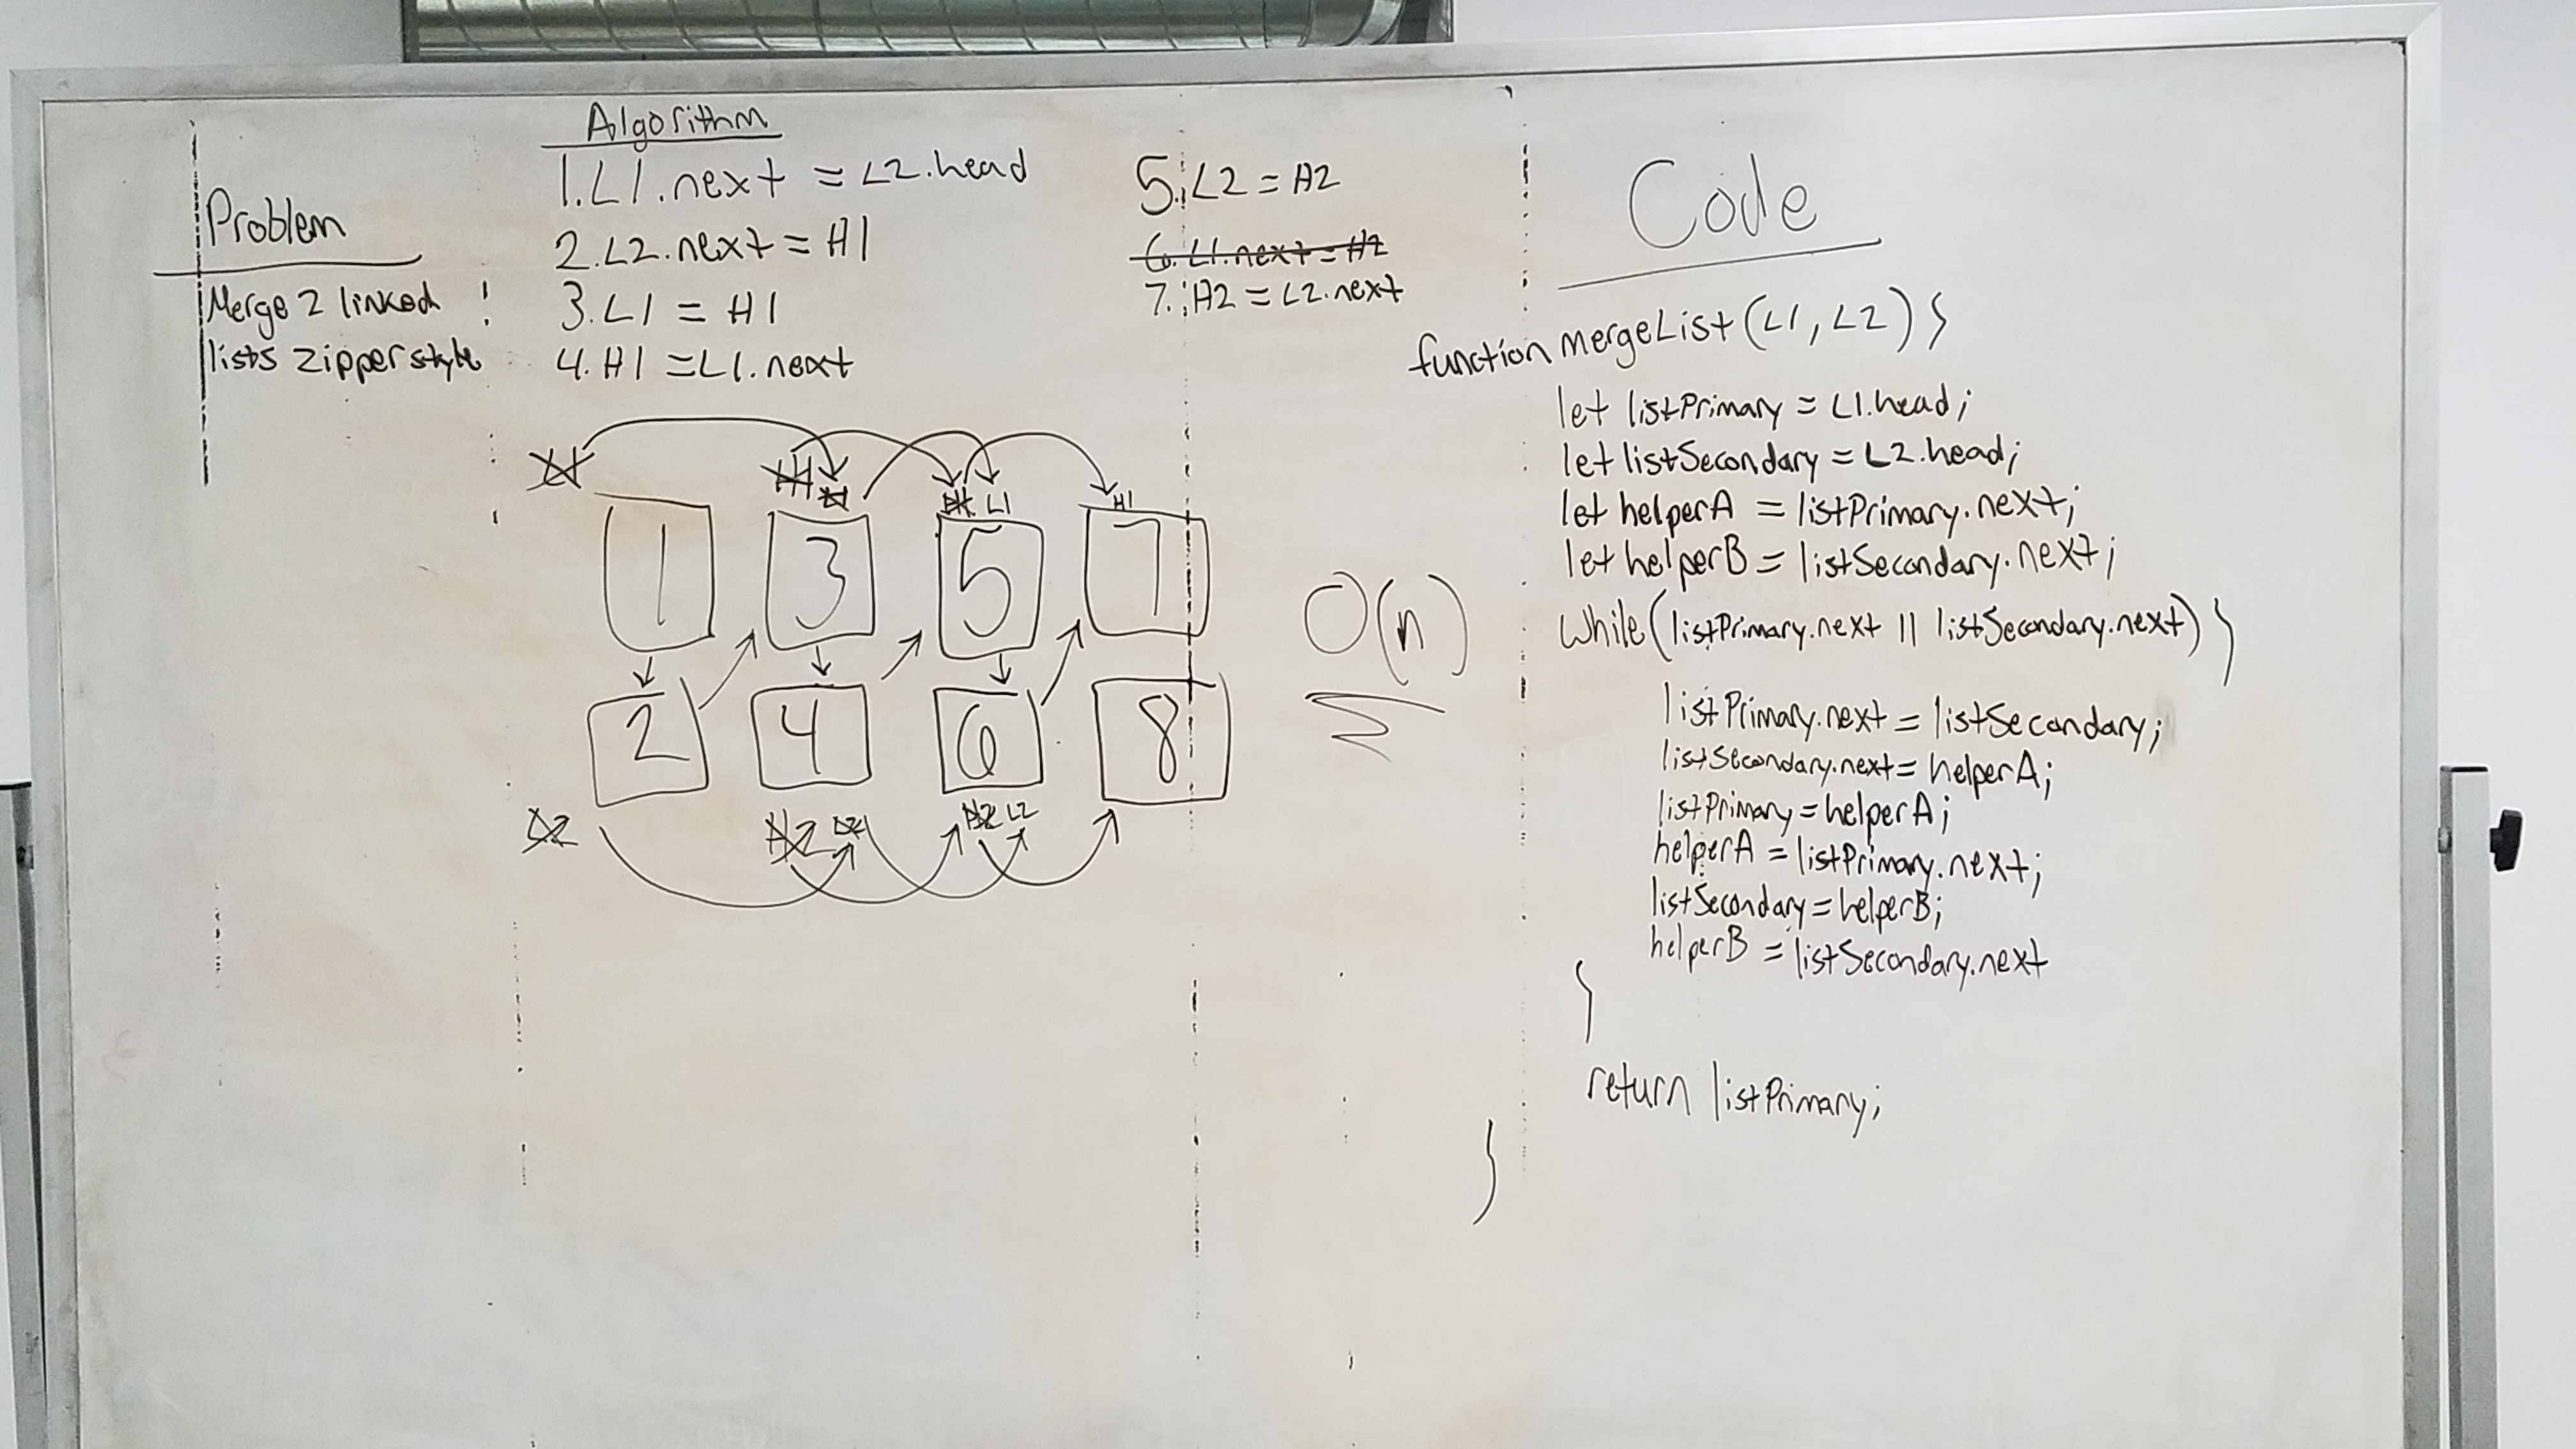 Problem
Merge 2 linked
lists zipper style
Algorithm
1. L1.next = L2.head
2. L2.next = H1
3. L1 = H1
4. H1 = L1.next
5. L2 = H2
6. L1.next = H2
7. H2 = L2.next
L1
H1 L1
H1 L1
H1
1 3 5 7
2 4 6 8
L2
H2 L2
H2 L2
O(n)
Code
function mergeList(L1, L2) {
let listPrimary = L1.head;
let listSecondary = L2.head;
let helperA = listPrimary.next;
let helperB = listSecondary.next;
while(listPrimary.next || listSecondary.next) }
listPrimary.next = listSecondary;
listSecondary.next = helperA;
listPrimary = helperA;
helperA = listPrimary.next;
listSecondary = helperB;
helperB = listSecondary.next
}
return listPrimary;
}